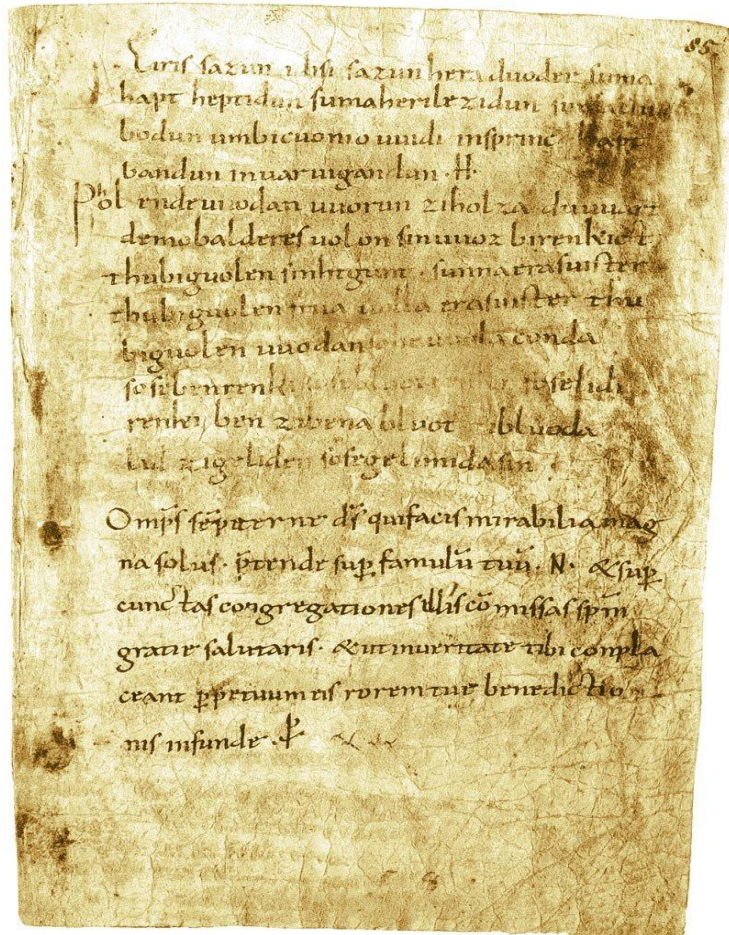 85
Eiris sazun idisi sazun hera duoder suma
hapt heptidun suma herilezidun suma clu
bodun umbicuonio uuidi insprinc hapt
bandun inuar uigandun .H.
Phol ende uuodan uuorun ziholza du uuart
demobalderes uolon sinuuoz birenkict
thubiguolen sinhtgunt . sunna erasuister
thubiguolen friia uolla erasuister thu
biguolen uuodan sohe uuola conda
sosebenrenki sose sose lidi
renki ben zibena bluot zibluoda
lid zigeliden sosegelimidasin
Omp̄s sēpiterne d̄s quifacis mirabilia mag
na solus . p̄tende sup̲ famulū tuū . N . & sup̲
cunctas congregationes illis cō missas sp̄m
gratie salutaris . & ut inueritate tibi conpla
ceant p̲petuum eis rorem tue benedictio
nis infunde . p̲